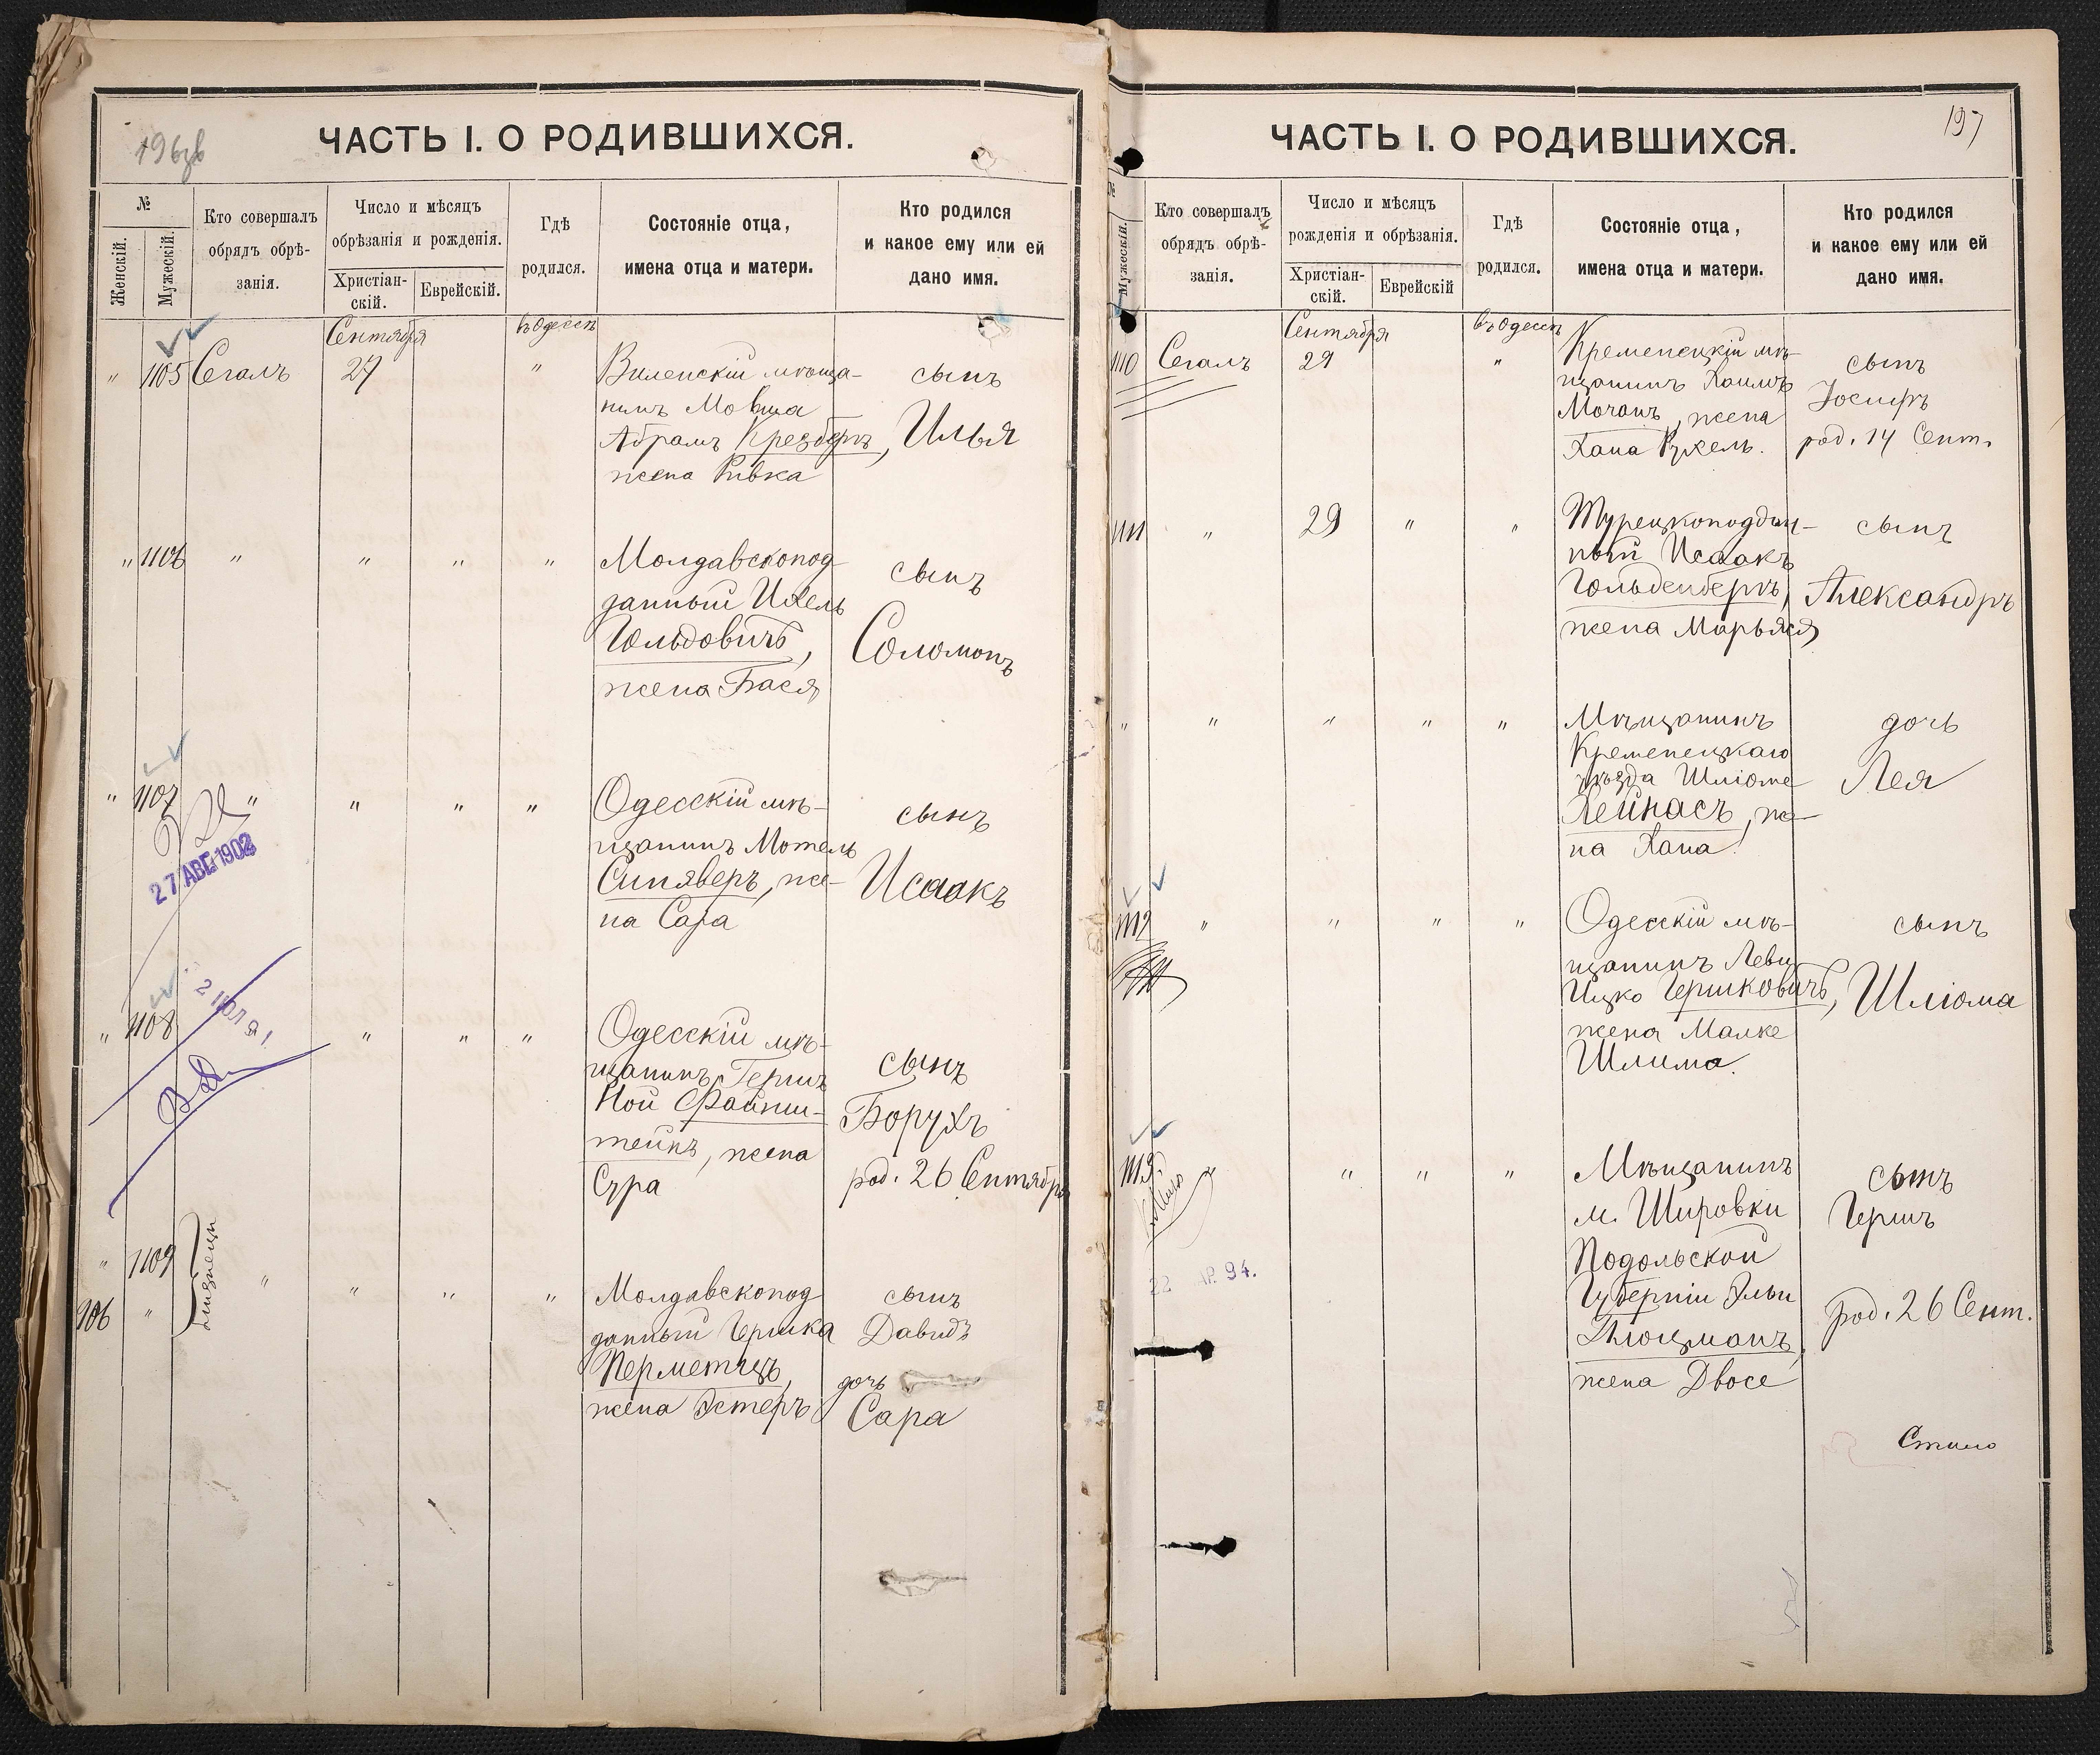 196об
ЧАСТЬ I. О РОДИВШИХСЯ.
№
Женскій.
Мужескій.
Кто совершалъ
обрядъ обрѣ-
занія.
Число и мѣсяцъ
обрѣзанія и рожденія.
Христіан-
скій.
Еврейскій.
Гдѣ
родился.
Состояніе отца,
имена отца и матери.
Кто родился
и какое ему или ей
дано имя.
Сентября
въ Одессѣ
" 1105 Сегалъ 27 "
Виленскій мѣща-
нинъ Мовша
Абрамъ Крезбергъ,
жена Ривка
сынъ
Илья
" 1106 " " " "
Молдавскопод
данный Ихель
Гольдовичъ,
жена Бася
сынъ
Соломонъ
" 1107 " " " "
27 АВГ 1902
Одесскій мѣ-
щанинъ Мотель
Синяверъ, же-
на Сара
сынъ
Исаакъ
" 1108 " " "
2 ІЮЛ 91
Одесскій мѣ-
щанинъ Гершъ
Ной Файнш-
тейнъ, жена
Сура
сынъ
Борухъ
род. 26 Сентября
" 1109 " " " "
906 "
Близнецы
Молдавскопод
данный Гершка
Перметецъ,
жена Эстеръ
сынъ
Давидъ
дочь
Сара
197
ЧАСТЬ I. О РОДИВШИХСЯ.
№
Мужескій.
Кто совершалъ
обрядъ обрѣ-
занія.
Число и мѣсяцъ
рожденія и обрѣзанія.
Христіан-
скій.
Еврейскій
Гдѣ
родился.
Состояніе отца,
имена отца и матери.
Кто родился
и какое ему или ей
дано имя.
Сентября
въ Одессѣ
1110 Сегалъ 29 "
Кременецкій мѣ-
щанинъ Хаимъ
Мочанъ, жена
Хана Рухель.
сынъ
Іосифъ
род. 14 Сент.
1111 " 29 " "
Турецкоподдан-
ный Исаакъ
Гольденбергъ,
жена Марьяся
сынъ
Александръ
" " " " "
Мѣщанинъ
Кременецкаго
уѣзда Шліоме
Лейнасъ, же-
на Хана
дочь
Лея
1112 " " " "
Одесскій мѣ-
щанинъ Леви
Ицко Гершковичъ,
жена Малке
Шлима.
сынъ
Шліома
1113 " " " "
22 АР. 94.
Мѣщанинъ
м. Шировки
Подольской
Губерніи Эльи
Клоцманъ,
жена Двосе
сынъ
Гершъ
род. 26 Сент.